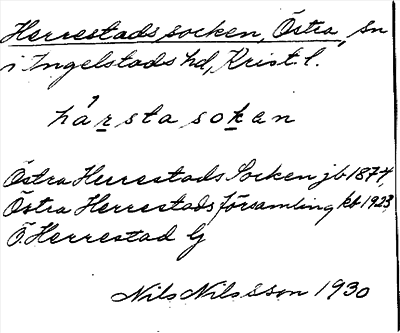 Herrestads socken, Östra, sn
i Ingelstads hd, Krist. l.
hårsta sokan
Östra Herrestads Socken jb 1874,
Östra Herrestads församling kb 1923,
Ö. Herrestad G
Nils Nilsson 1930